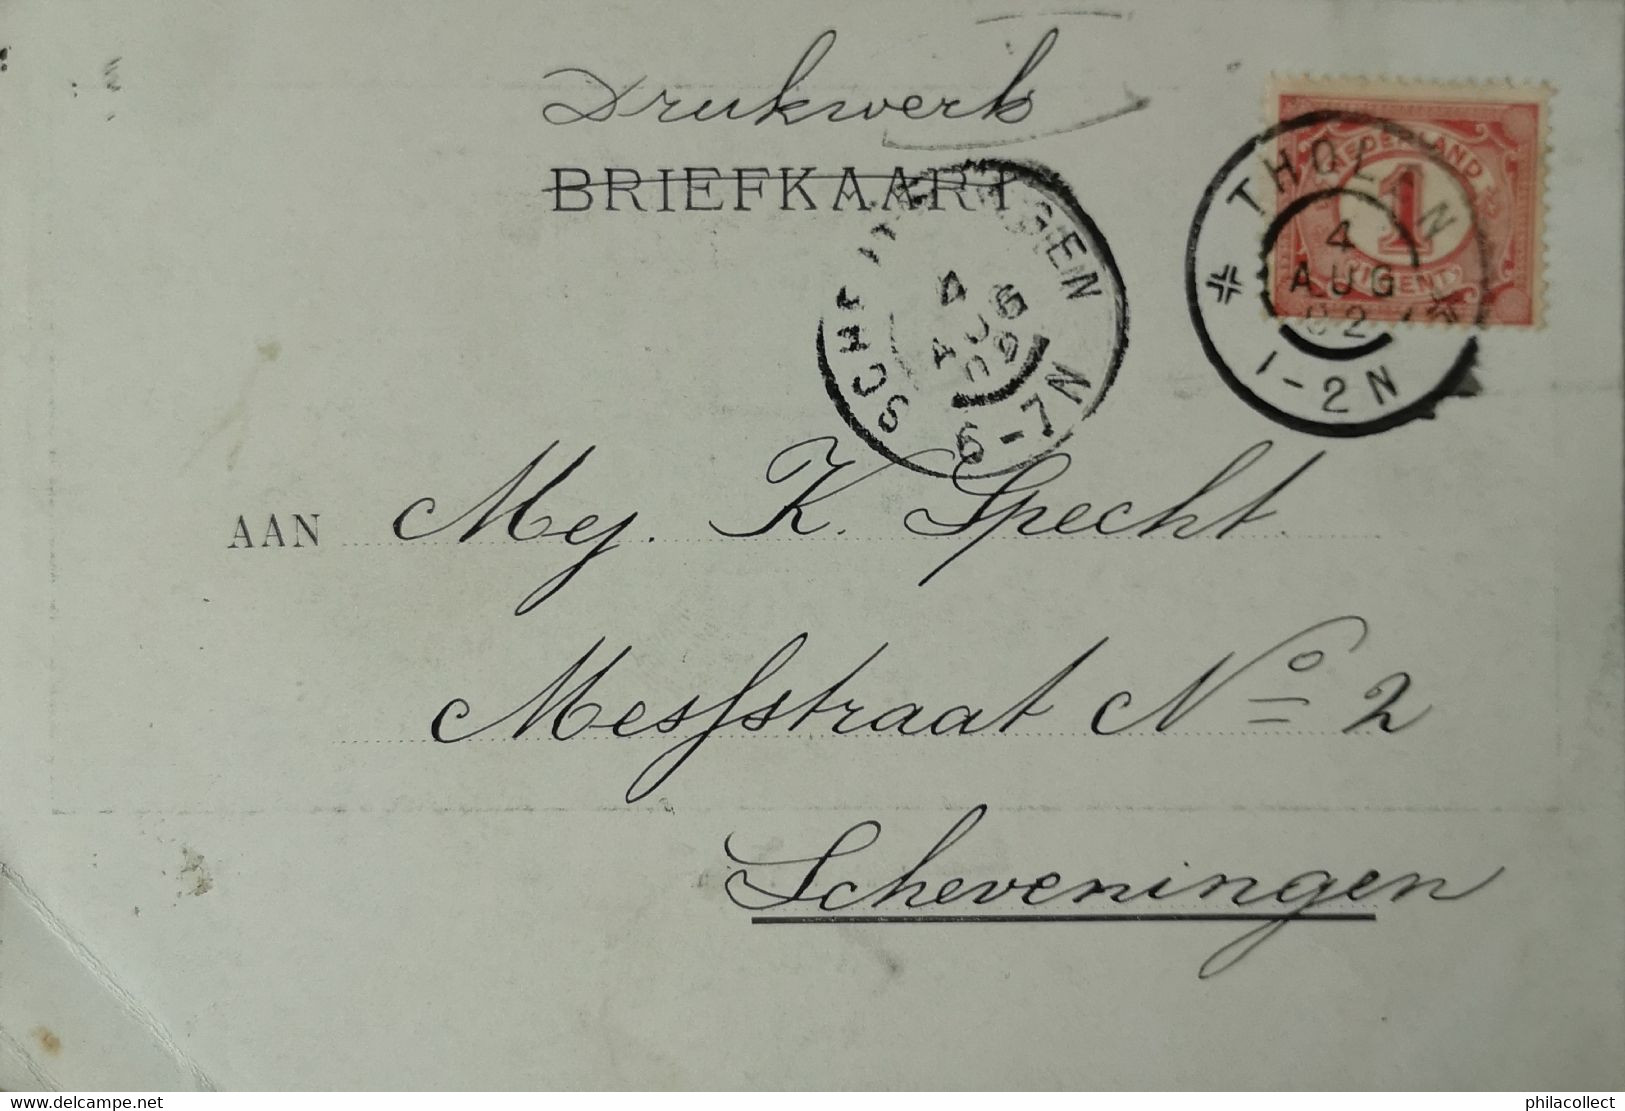 Drukwerk
BRIEFKAART
NEDERLAND
1
CENT
THOLEN
4
AUG
02
1-2N
SCHEVENINGEN
4 AUG
6-7N
AAN Mej. K. Specht.
Messstraat No 2
Scheveningen
Delcampe.net
philacollect